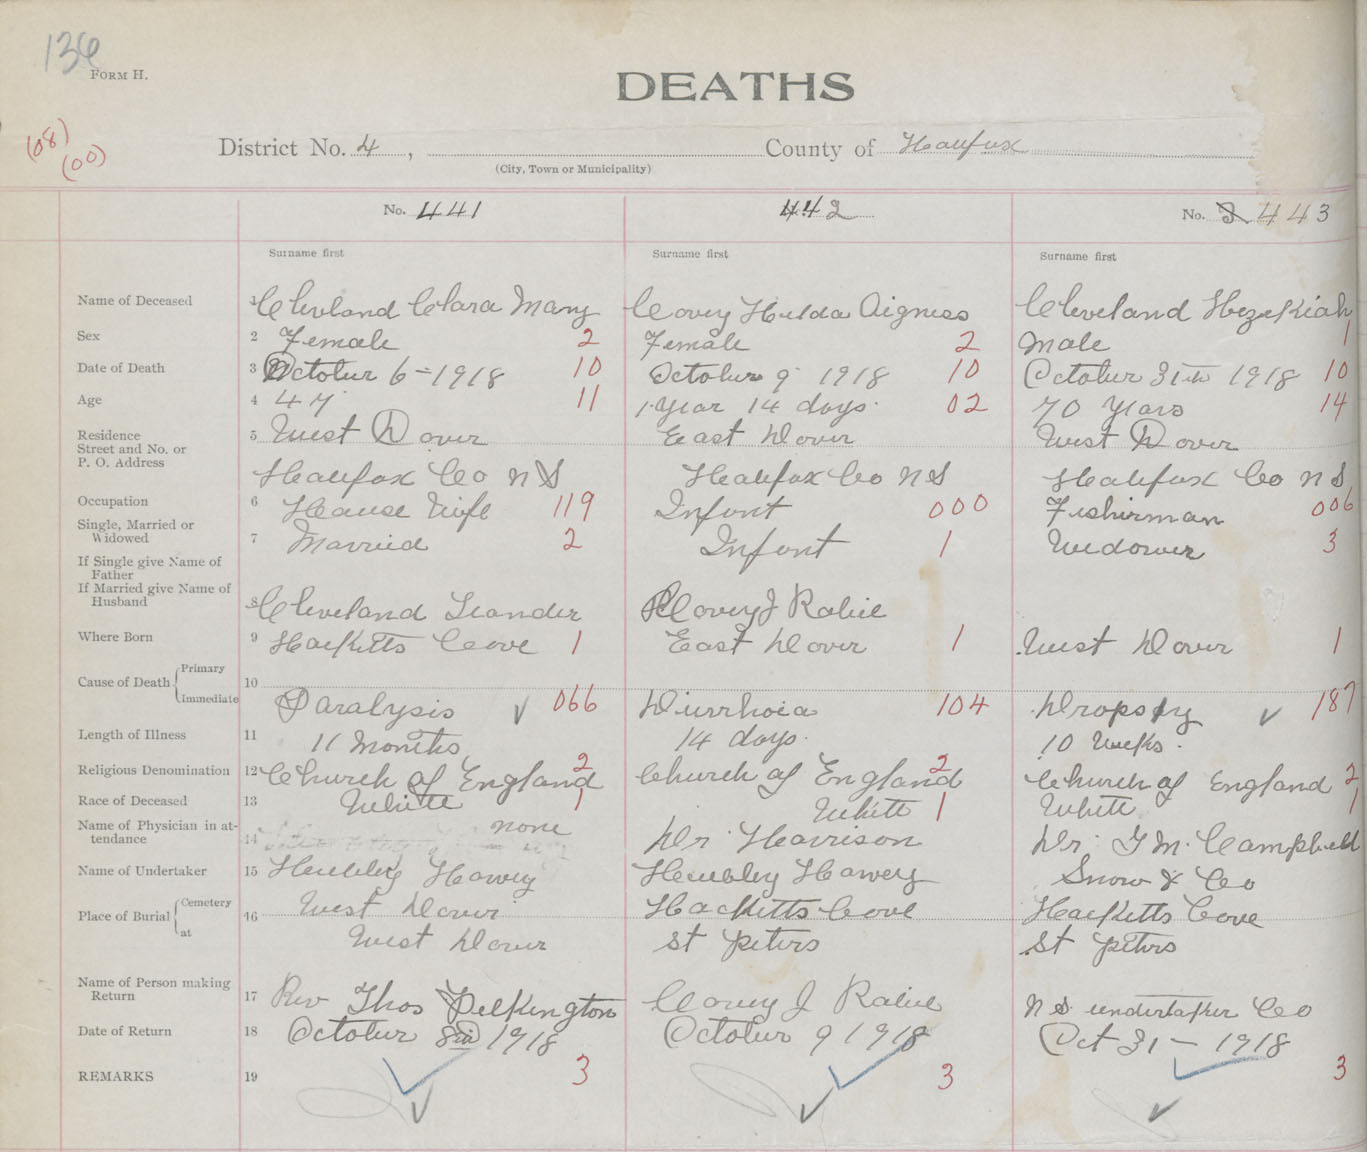 136
FORM H.
DEATHS
(08)
(00)
District No. 4, County of Halifax
(City, Town or Municipality)
No. 441 442 No. 3 443
Surname first Surname first Surname first
Name of Deceased 1 Cleveland Clara Mary Covey Hulda Aigness Cleveland Hezekiah
Sex 2 Female 2 Female 2 Male 1
Date of Death 3 October 6-1918 10 October 9 1918 10 October 31th 1918 10
Age 4 47 11 1 Year 14 days. 02 70 Years 14
Residence 5 West Dover East Dover West Dover
Street and No. or
P. O. Address Halifax Co N S Halifax Co N S Halifax Co N S
Occupation 6 House Wife 119 Infant 000 Fisherman 006
Single, Married or
Widowed 7 Married 2 Infant 1 Widower 3
If Single give Name of
Father
If Married give Name of
Husband 8 Cleveland Leander Covey J Rabie
Where Born 9 Hacketts Cove 1 East Dover 1 West Dover 1
Cause of Death Primary 10
Immediate Paralysis 066 Diurrhoia 104 Dropsy 187
Length of Illness 11 11 Months 14 days. 10 Weeks.
Religious Denomination 12 Church of England 2 Church of England 2 Church of England 2
Race of Deceased 13 White 1 White 1 White 1
Name of Physician in at-
tendance 14 none Dr Harrison Dr. J M. Campbell
Name of Undertaker 15 Hubley Harvey Hubley Harvey Snow & Co
Place of Burial Cemetery 16 West Dover Hacketts Cove Hacketts Cove
at West Dover St Peters St Peters
Name of Person making
Return 17 Rev Thos Pelkington Covey J Rabie N S undertaker Co
Date of Return 18 October 8th 1918 October 9 1918 Oct 31-1918
REMARKS 19 3 3 3